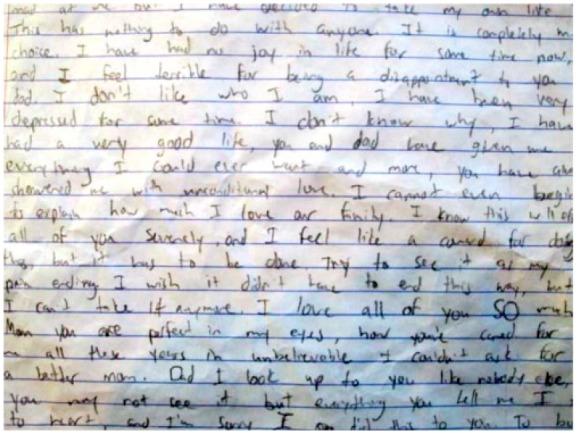 mad at me but I have decided to take my own life
This has nothing to do with anyone. It is completely m
choice. I have had no joy in life for some time now,
and I feel terrible for being a disappointment to you
dad. I don't like who I am, I have been very
depressed for some time. I don't know why, I have
had a very good life, you and dad have given me
everything I could ever want and more, you have
showered me with unconditional love. I cannot even begin
to explain how much I love our family. I know this will
all of you severely, and I feel like a coward for
this, but it has to be done. Try to see it as my
pain ending. I wish it didn't have to end this way, but
I can't take it anymore. I love all of you SO much
Mom you are perfect in my eyes, how you've cared for
all these years is unbelievable I couldn't ask for
a better mom. Dad I look up to you like nobody else,
you may not see it but everything you tell me I
to heart, and I'm sorry I did this to you. To